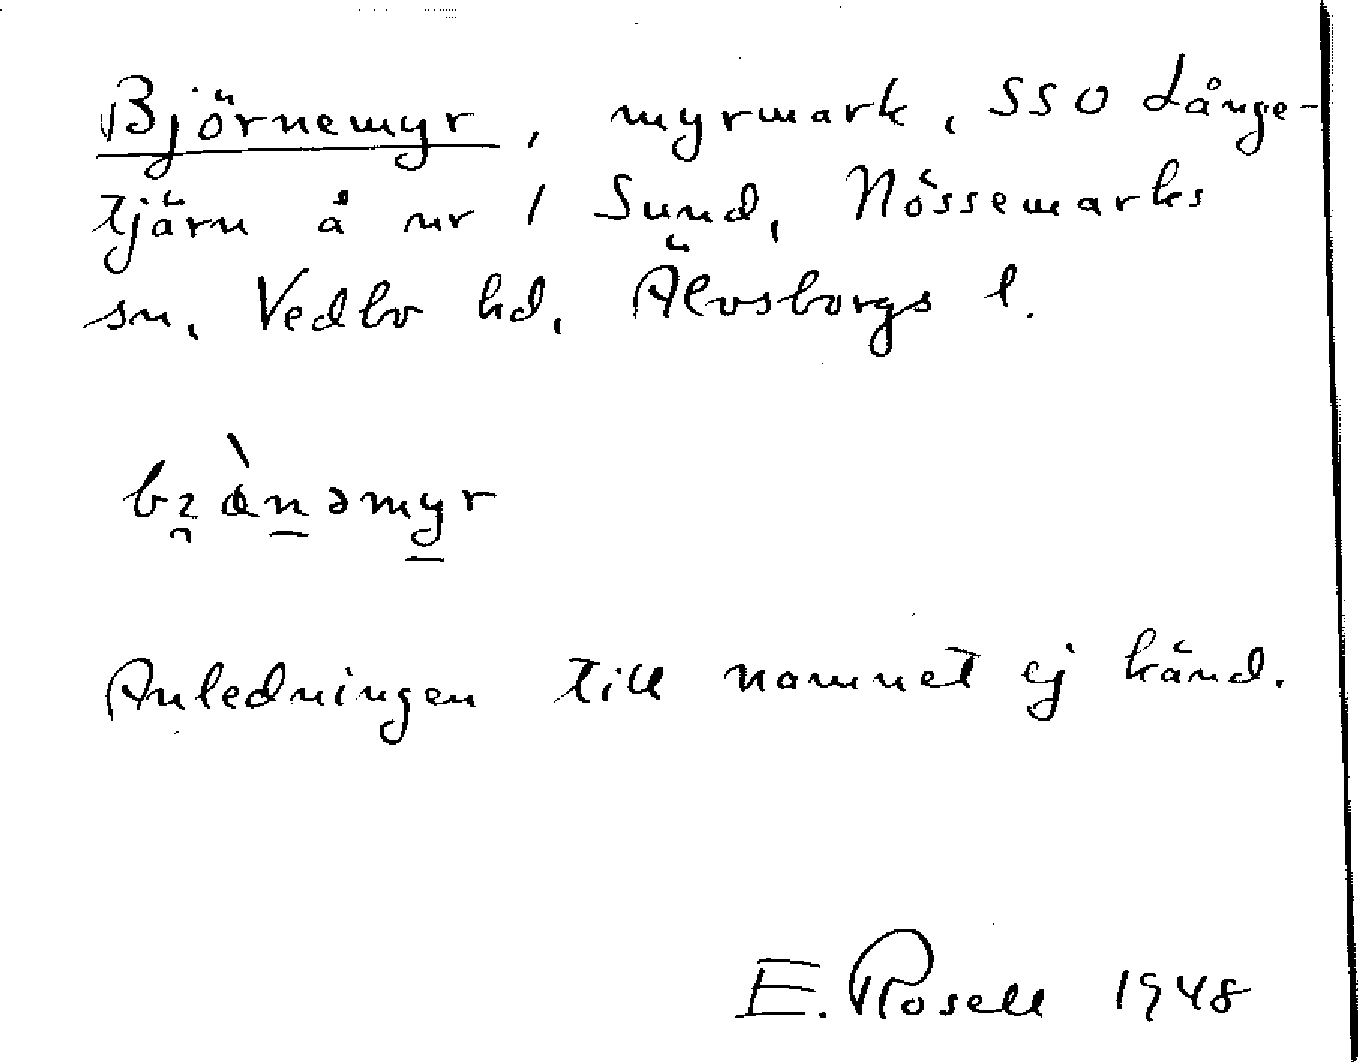 Björnemyr, myrmark, SSO Långe-
tjärn å nr 1 Sund, Nössemarks
sn, Vedbo hd, Älvsborgs l.
bzànəmyr
Anledningen till namnet ej känd.
E. Rosell 1948